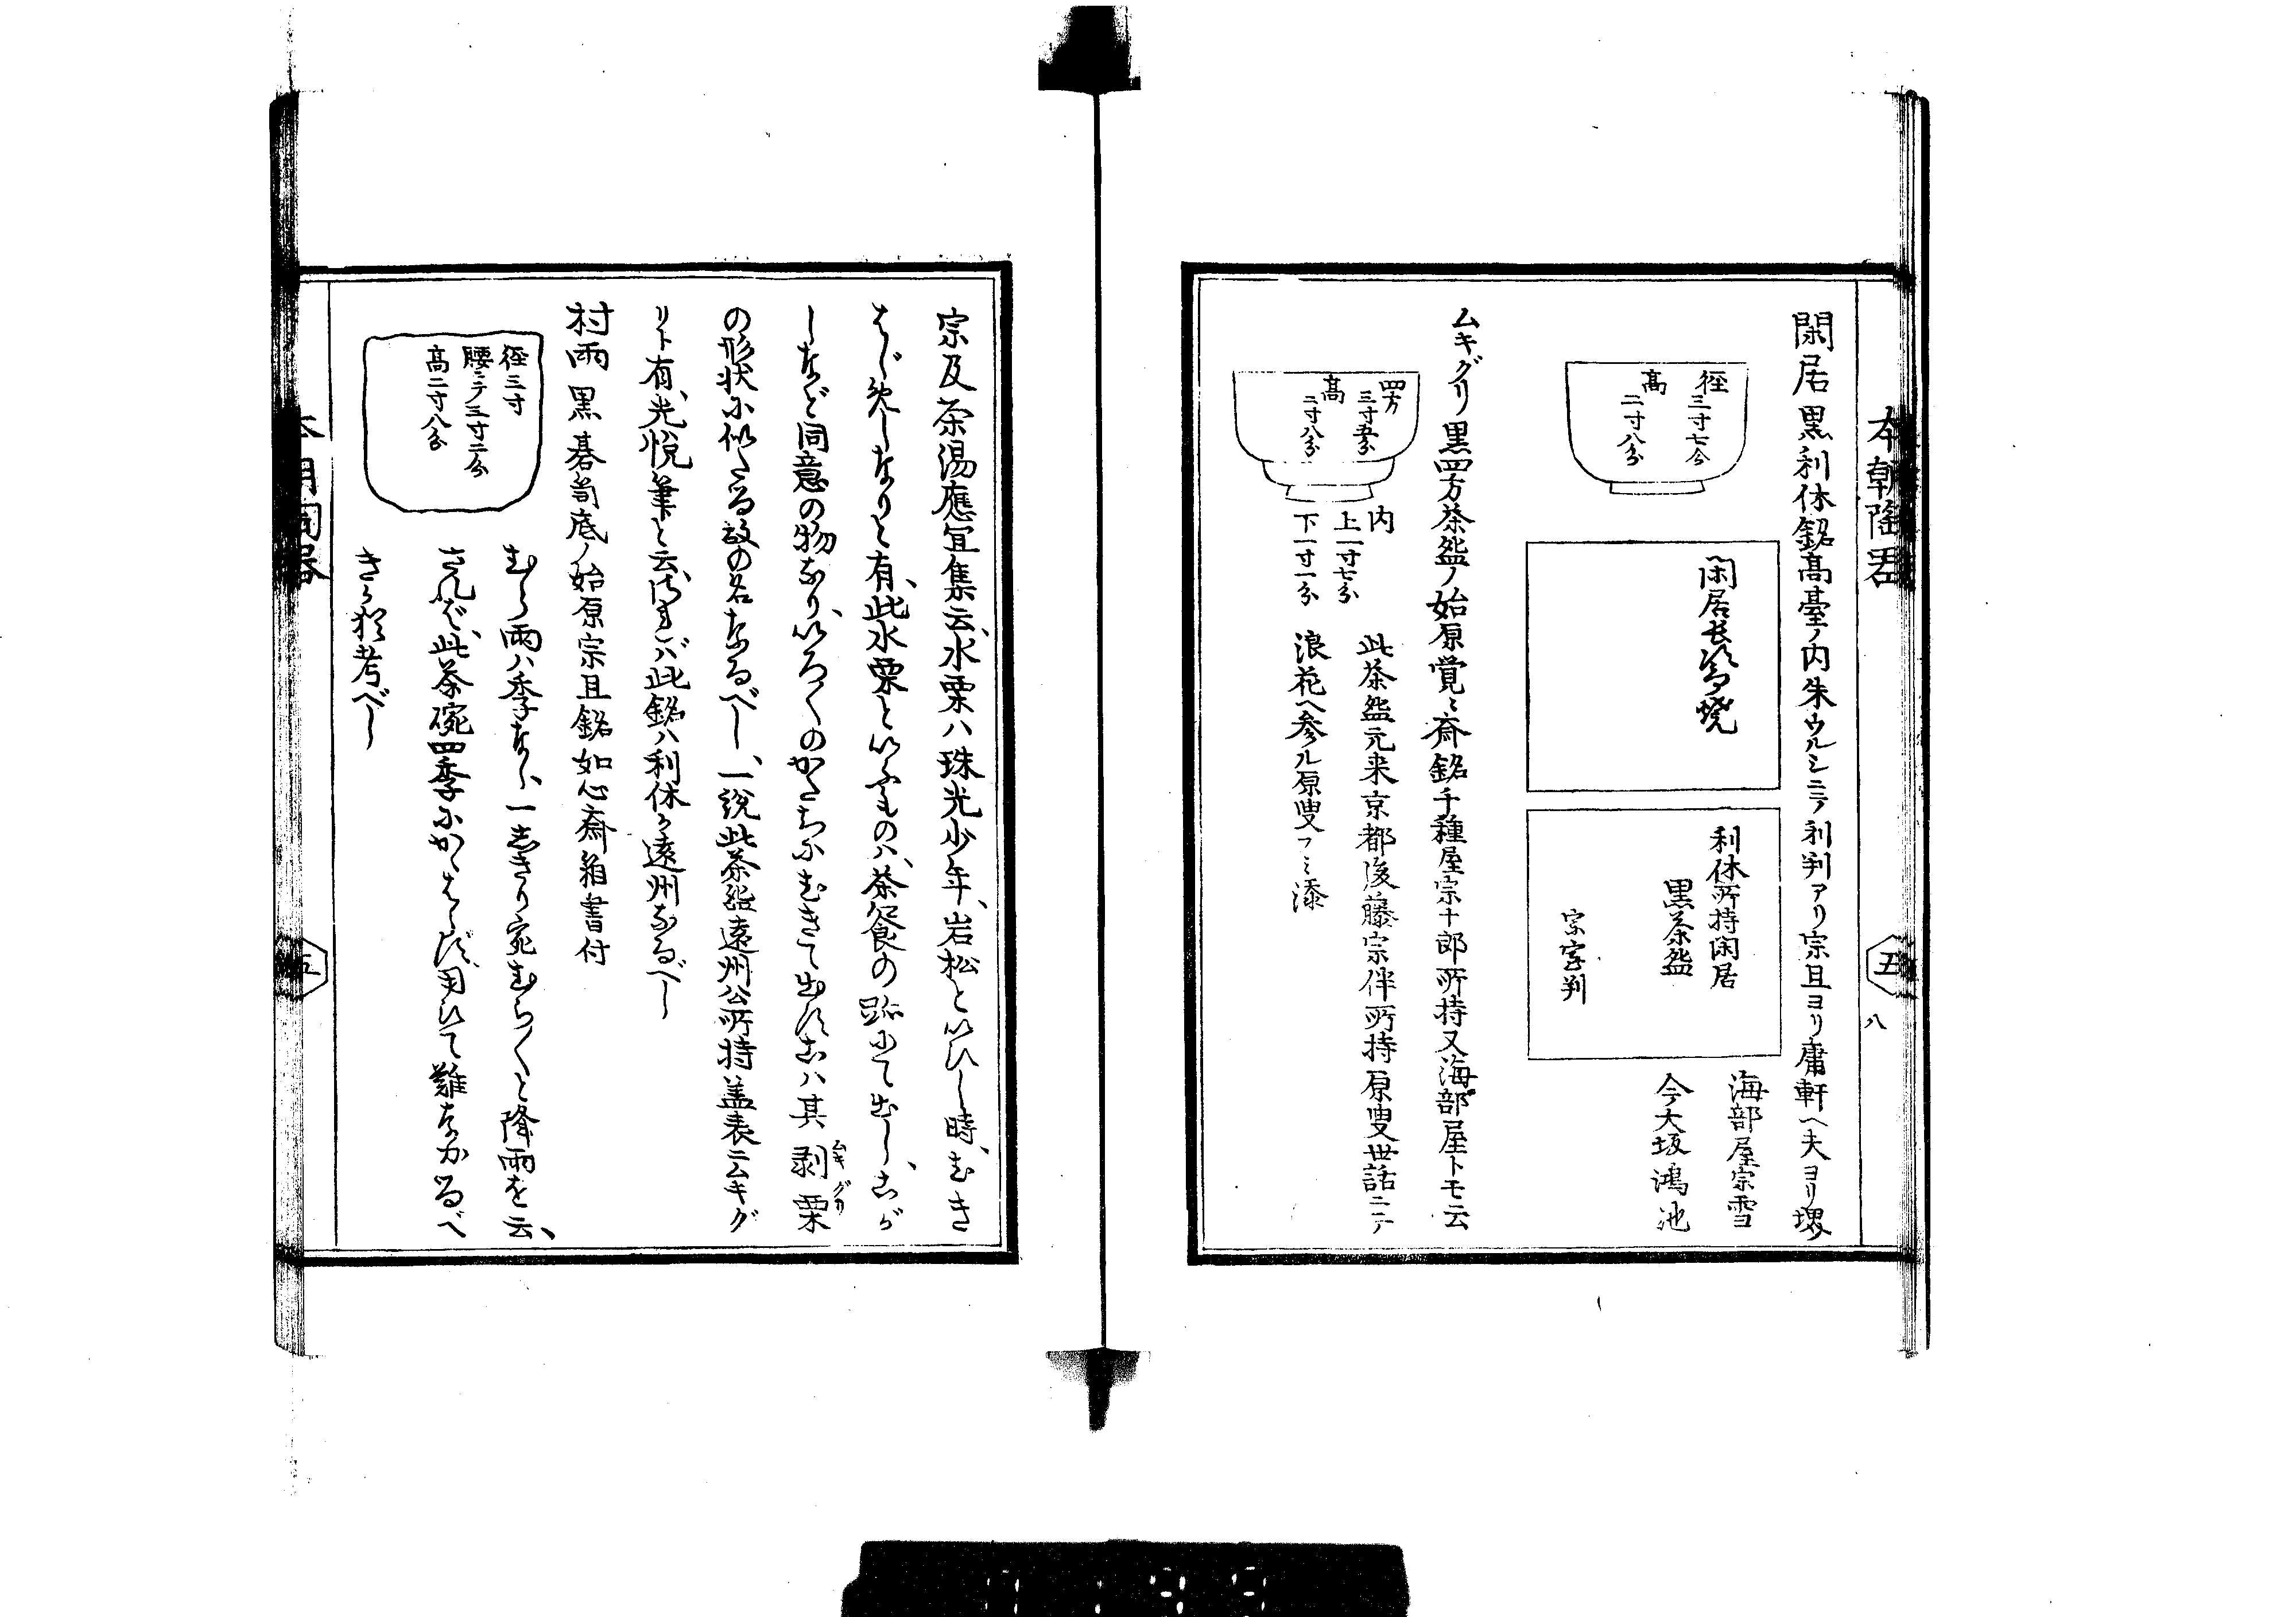 本朝陶器
五
八
閑居 黒利休銘高臺ノ内朱ウルシニテ利判アリ宗旦ヨリ庸軒ヘ夫ヨリ堺
海部屋宗雪
今大坂鴻池
徑三寸七分
高二寸八分
閑居長次郎燒
利休所持閑居
黒茶盌
宗室判
ムキグリ 黒四方茶盌ノ始原覚々斎銘千種屋宗十郎所持又海部屋トモ云
四方三寸五分
高二寸八分
内
上一寸七分
下一寸一分
此茶盌元来京都後藤宗伴所持原叟世話ニテ
浪花ヘ参ル原叟フミ添
宗及茶湯應宜集云、水栗ハ珠光少年、岩松といひし時、むき
はじめしなりと有、此水栗といふものハ、茶飡の跡にて出し、
しなど同意の物なり、いろ〱のかたちにむきて出すハ其剥栗
ムキグリ
の形状に似たる故の名なるべし、一説此茶盌遠州公所持蓋表ニムキグ
リト有、光悦筆と云、バ此銘ハ利休か遠州なるべし
村雨 黒碁笥底ノ始原宗旦銘如心斎箱書付
徑三寸
腰ニテ三寸二分
高二寸八分
むら雨ハ季なし、一しきり宛むら〱と降雨を云、
されば、此茶碗四季にかゝはらず、用ひて難なかるべ
きか猶考べし
五